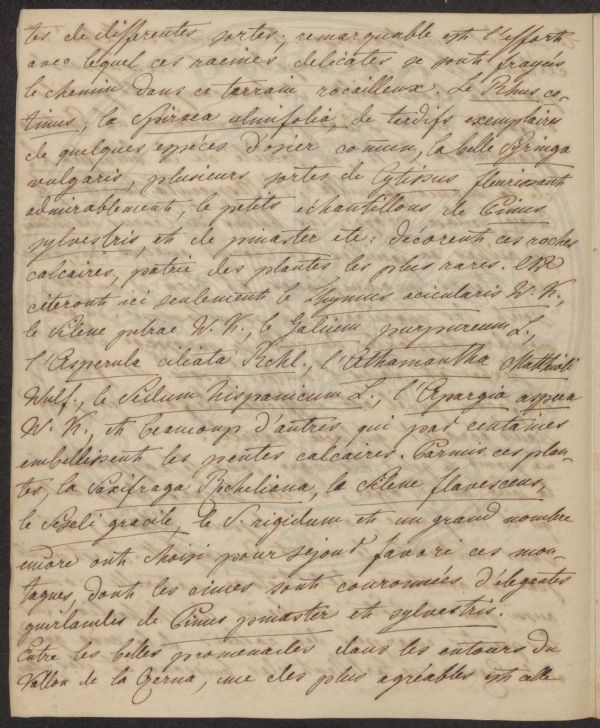 tes de differentes sortes; remarquable est l'effort
avec lequel ces racines delicates se sont frayés
le chemin dans ce terrain rocailleux. Le Rhus co-
tinus, la Spiraea ulmifolia, de tardifs exemplaires
de quelques espéces d'osier commun, la belle Syringa
vulgaris, plusieurs sortes de Cytissus fleurissant
admirablement, le petits echantillons de Pinus
sylvestris, et de pinaster etc: décorent ces roches
calcaires, patrie des plantes les plus rares.
citeront ici seulement le Thymus acicularis W. K.,
le Silene petrae W. K., le Galium purpureum L.,
l'Asperula ciliata Rchl., l'Athamantha Matthioli
Wulf., le Sedum hispanicum L., l'Apargia aspera
W. K., et beaucoup d'autres, qui par centaines
embellissent les pentes calcaires. Parmis ces plan-
tes, la Saxifraga Rocheliana, la Silene flavescens,
le Seseli gracile, le S. rigidum et un grand nombre
encore ont choisi pour sejour favori ces mon-
tagnes, dont les cimes sont couronnées d'élegantes
guirlandes de Pinus pinaster et sylvestris.
Entre les belles promenades dans les entours du
Vallon de la Cerna, une des plus agréables est celle